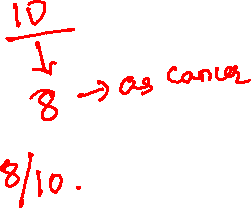 10
↓
8 → as cancer
8/10.